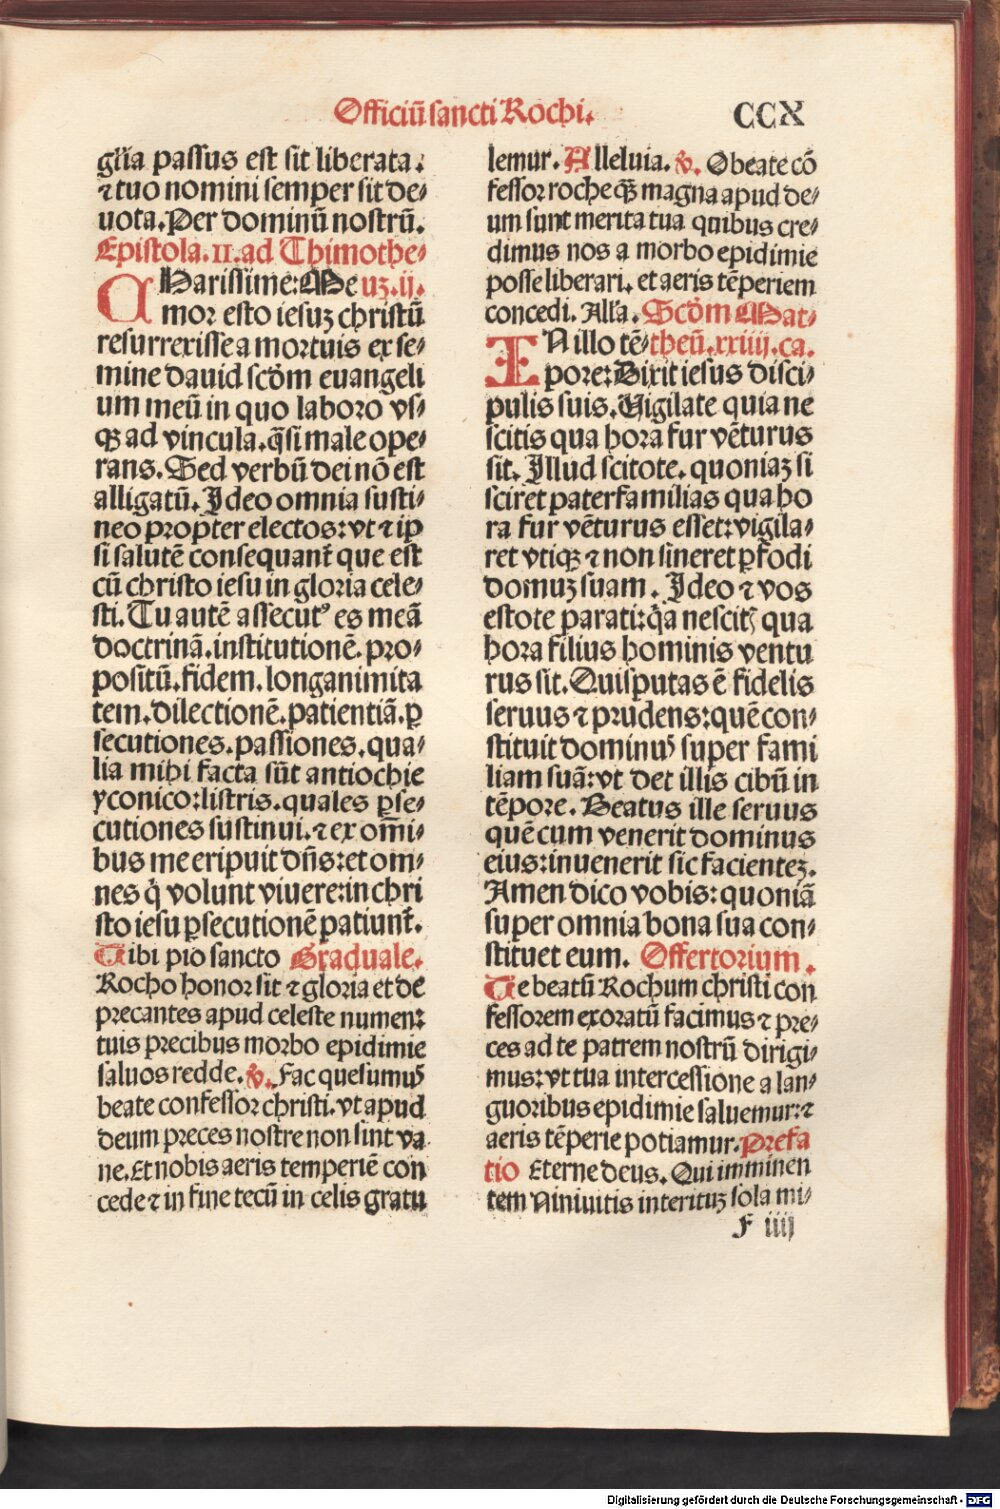 Officiū sancti Rochi.
CCX
gr̄ia passus est sit liberata:
⁊ tuo nomini semper sit de⸗
uota. Per dominū nostrū.
Epistola. II. ad Thimothe⸗
CHarissime: Me uꝫ. ij.
mor esto iesuꝫ christū
resurrexisse a mortuis ex se⸗
mine dauid scd̄m euangeli
um meū in quo laboro vs⸗
qꝫ ad vincula. q̄si male ope⸗
rans. Sed verbū dei nō est
alligatū. Ideo omnia susti⸗
neo propter electos: vt ⁊ ip
si salutē consequant̄ que est
cū christo iesu in gloria cele⸗
sti. Tu autē assecutꝰ es meā
doctrinā. institutionē. pro⸗
positū. fidem. longanimita
tem. dilectionē. patientiā. ꝑ
secutiones. passiones. qua⸗
lia mihi facta sūt antiochie
yconio: listris. quales ꝑse⸗
cutiones sustinui. ⁊ ex om̄i⸗
bus me eripuit dn̄s: et om⸗
nes q̇ volunt viuere: in chri
sto iesu ꝑsecutionē patiunt̄.
Tibi pio sancto Graduale.
Rocho honor sit ⁊ gloria et de
precantes apud celeste numen:
tuis precibus morbo epidimie
saluos redde. ꝟ. Fac quesumꝰ
beate confessor christi. vt apud
deum preces nostre non sint va
ne. Et nobis aeris temperiē con
cede ⁊ in fine tecū in celis gratu
lemur. Alleluia. ꝟ. O beate cō
fessor roche qꝫ magna apud de⸗
um sunt merita tua quibus cre⸗
dimus nos a morbo epidimie
posse liberari. et aeris tēperiem
concedi. Alľa. Scd̄m Mat⸗
IN illo tē⸗ theū. xxiiij. ca.
pore: Dixit iesus disci⸗
pulis suis. Vigilate quia ne
scitis qua hora fur vēturus
sit. Illud scitote. quoniaꝫ si
sciret paterfamilias qua ho
ra fur vēturus esset: vigila⸗
ret vtiqꝫ ⁊ non sineret ꝑfodi
domuꝫ suam. Ideo ⁊ vos
estote parati: q̇a nescitꝭ qua
hora filius hominis ventu
rus sit. Quis putas ē fidelis
seruus ⁊ prudens: quē con⸗
stituit dominꝰ super fami
liam suā: vt det illis cibū in
tēpore. Beatus ille seruus
quē cum venerit dominus
eius: inuenerit sic facienteꝫ.
Amen dico vobis: quoniā
super omnia bona sua con⸗
stituet eum. Offertorium.
Te beatū Rochum christi con
fessorem exoratū facimus ⁊ pre⸗
ces ad te patrem nostrū dirigi⸗
mus: vt tua intercessione a lan⸗
guoribus epidimie saluemur: ⁊
aeris tēperie potiamur. Prefa
tio Eterne deus. Qui imminen
tem Niniuitis interituꝫ sola mi⸗
F iiij
Digitalisierung gefördert durch die Deutsche Forschungsgemeinschaft - DFG